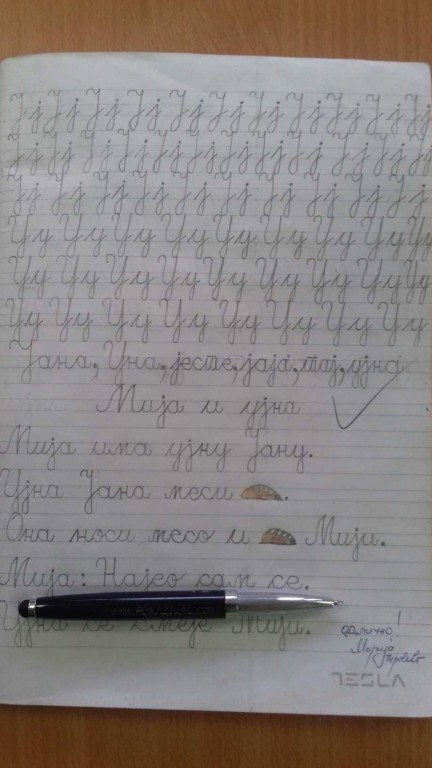 Јј Јј Јј Јј Јј Јј Јј Јј Јј Јј Јј
Јј Јј Јј Јј Јј Јј Јј Јј Јј Јј Јј
Јј Јј Јј Јј Јј Јј Јј Јј Јј Јј Јј
Уу Уу Уу Уу Уу Уу Уу Уу Уу
Уу Уу Уу Уу Уу Уу Уу Уу Уу
Уу Уу Уу Уу Уу Уу Уу Уу
Јана, Уна, јесте, јаја, тај, ујна.
Мија и ујна
Мија има ујну Јану.
Ујна Јана меси .
Она носи месо и Мији.
Мија: Најео сам се.
Ујна се смеје Мији.
одлично!
Марија
TESLA